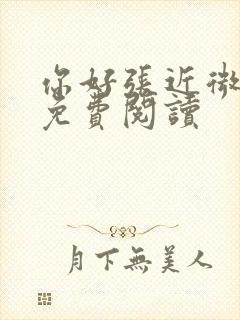 你好張近微
免費閱讀
月下無美人